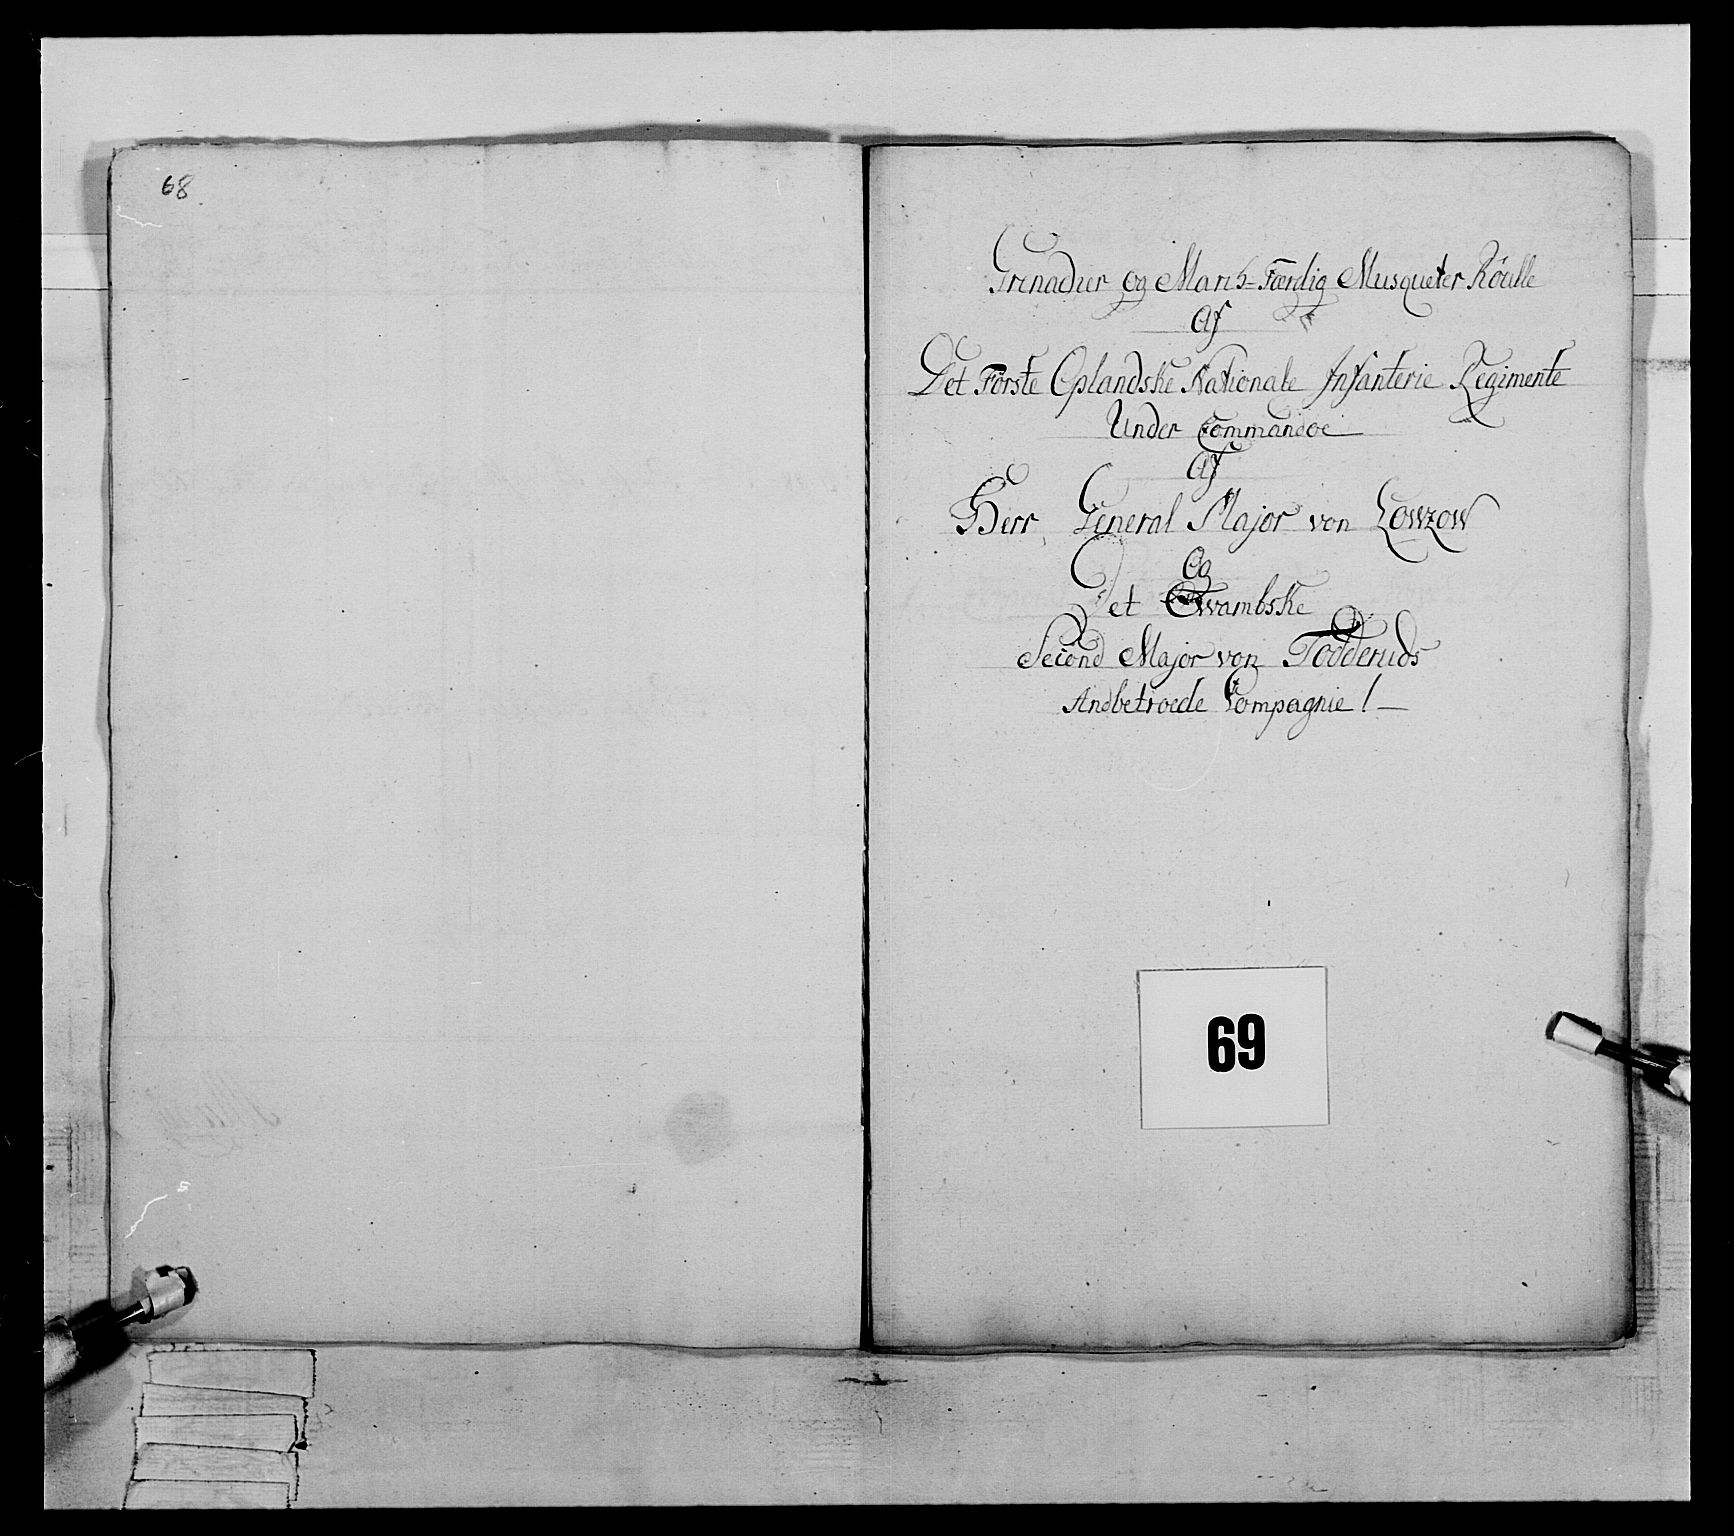 68
Grenadier og March-Færdig Musqueter Röulle
Af
Det Förste Oplandske Nationale Infanterie Regimente
Under Commandoe
Af
Herr General Major von Lowzow
Og
Det Svambske
Second Major von Todderuds
Andbetroede Compagnie /
69